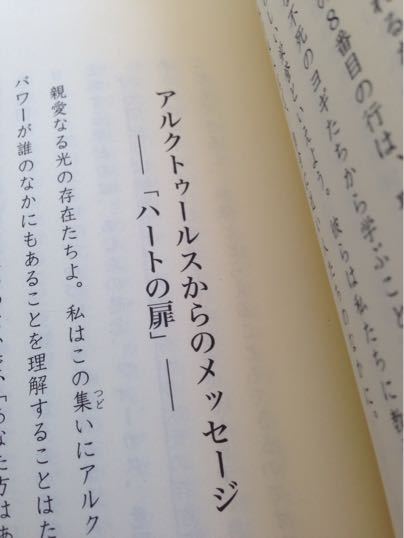 る
の8番目の行は、
不死のヨギたちから学ぶこと
といえよう。彼らは私たちに教
たちのなかに。
アルクトゥールスからのメッセージ
――「ハートの扉」――
親愛なる光の存在たちよ。私はこの集いにアルク
つど
パワーが誰のなかにもあることを理解することはた
あなた方はあ